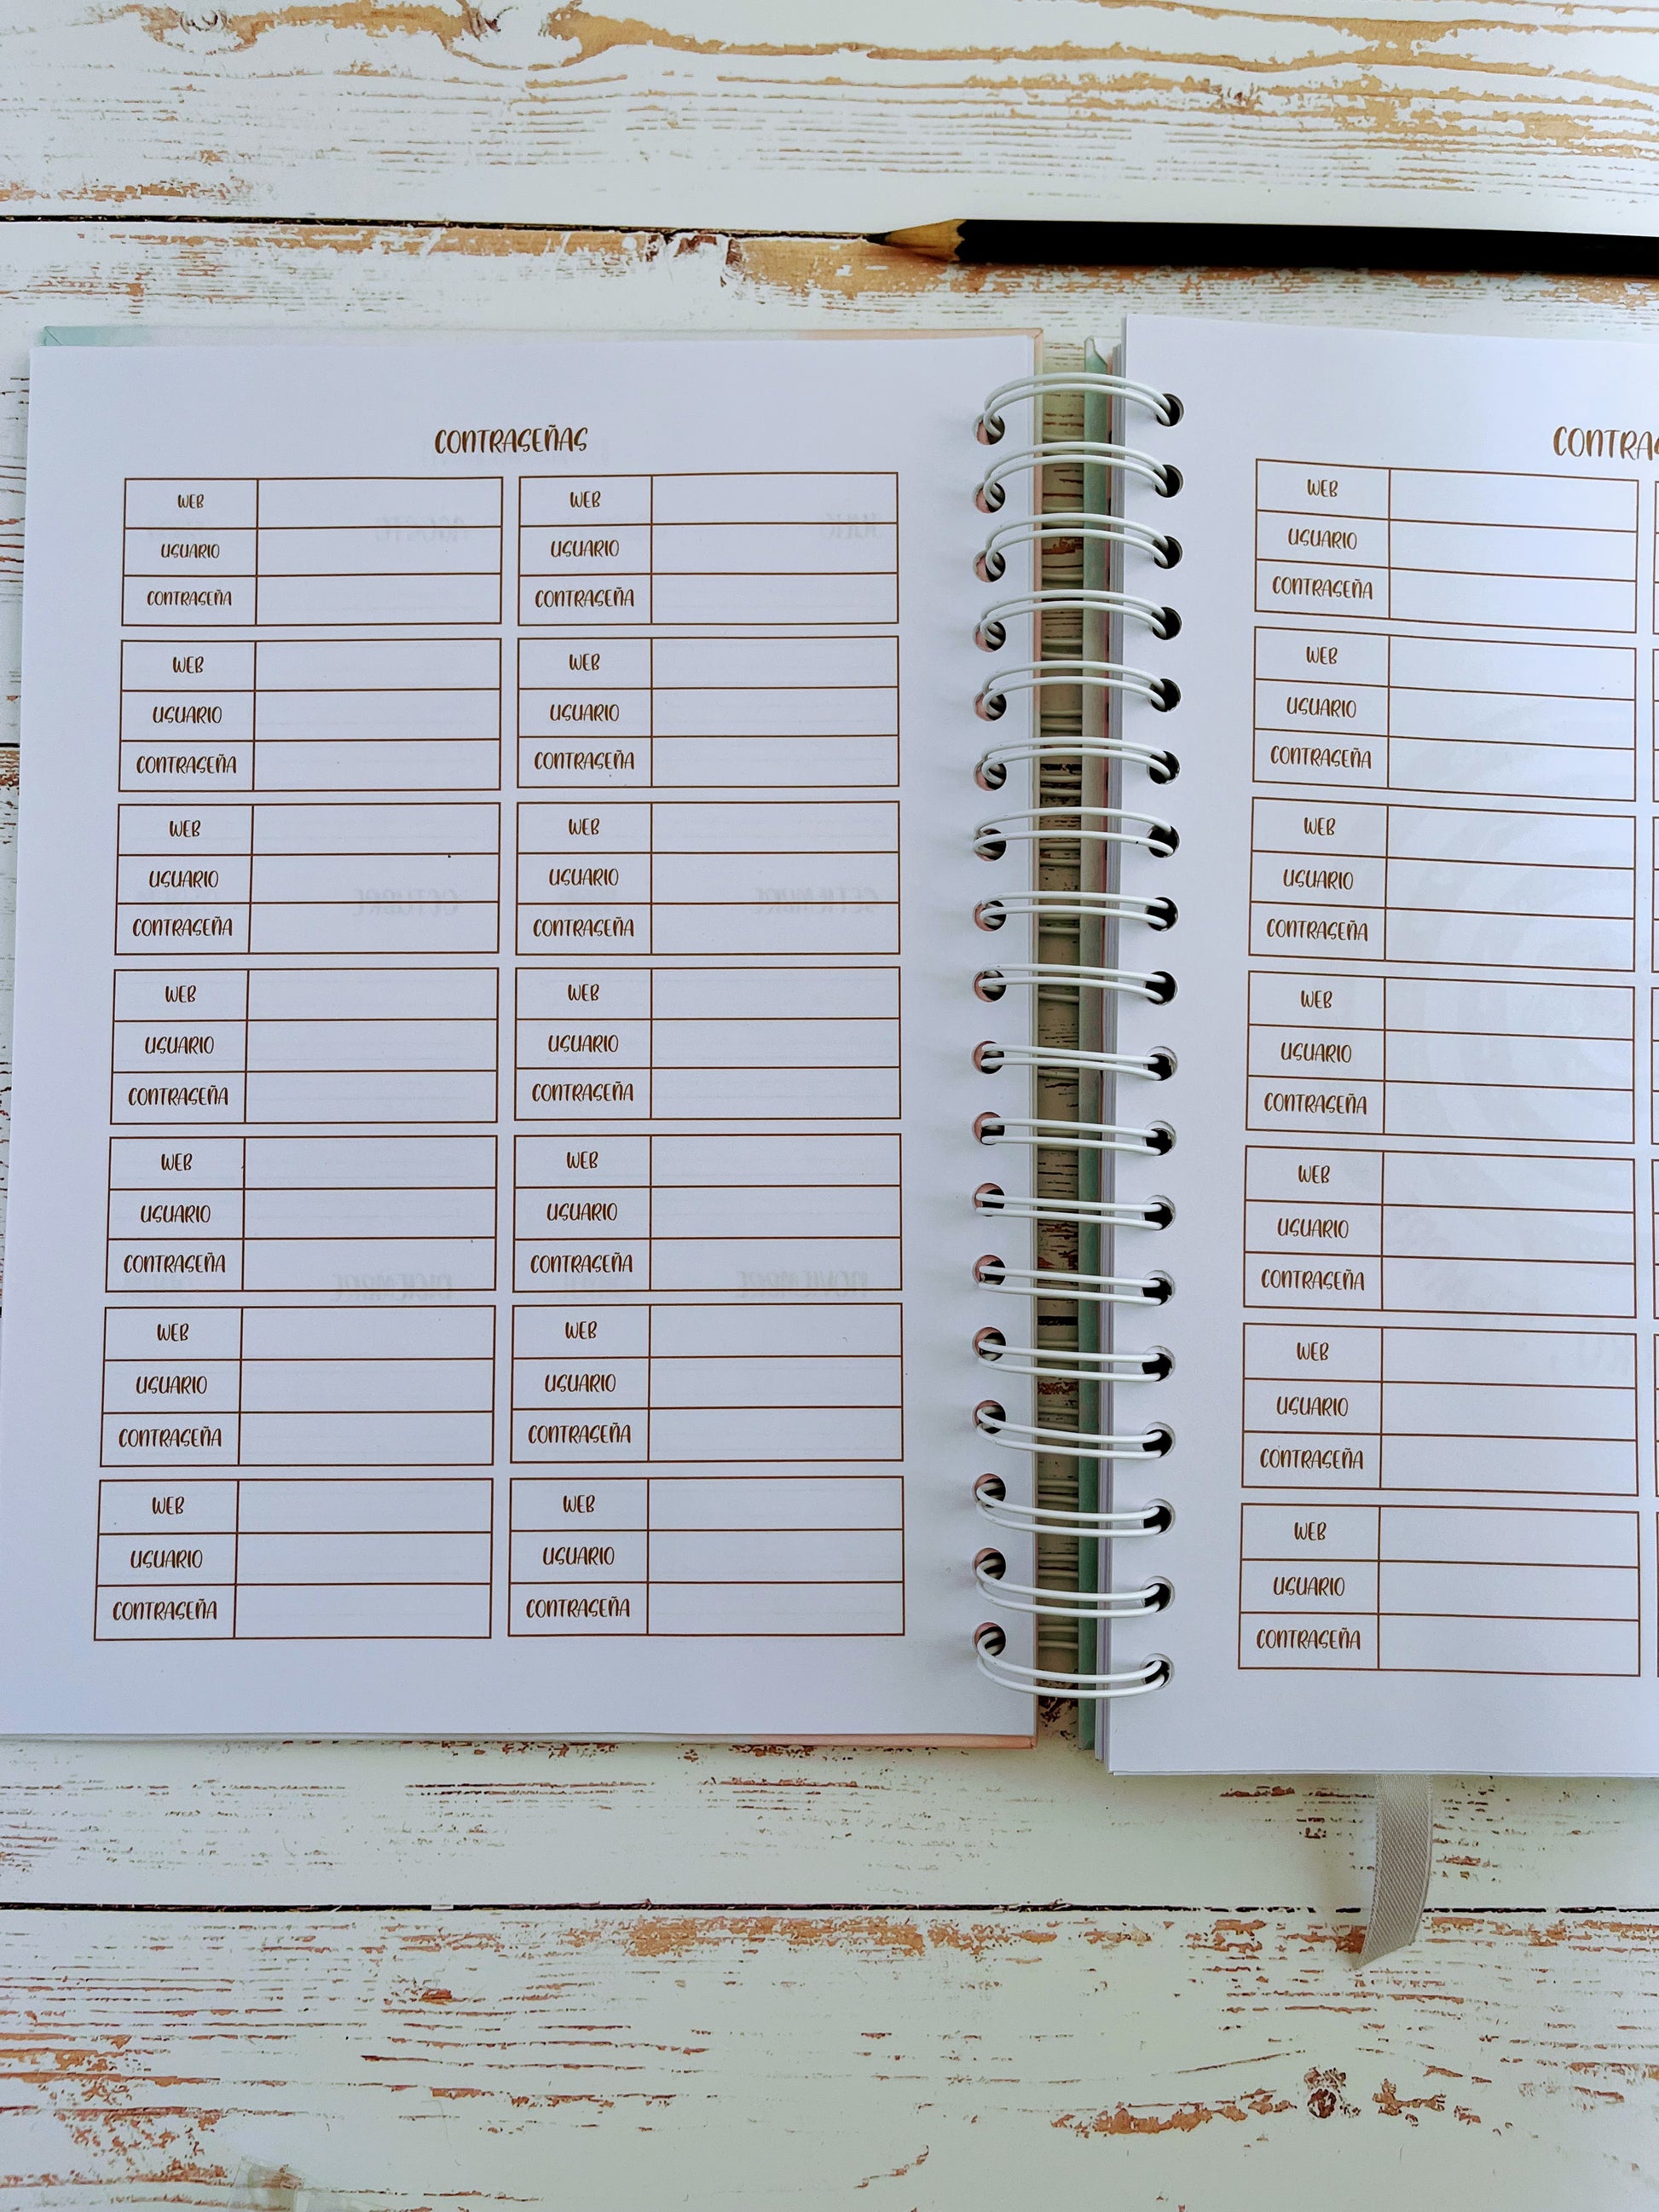 CONTRASEÑAS
WEB WEB
USUARIO USUARIO
CONTRASEÑA CONTRASEÑA
WEB WEB
USUARIO USUARIO
CONTRASEÑA CONTRASEÑA
WEB WEB
USUARIO USUARIO
CONTRASEÑA CONTRASEÑA
WEB WEB
USUARIO USUARIO
CONTRASEÑA CONTRASEÑA
WEB WEB
USUARIO USUARIO
CONTRASEÑA CONTRASEÑA
WEB WEB
USUARIO USUARIO
CONTRASEÑA CONTRASEÑA
WEB WEB
USUARIO USUARIO
CONTRASEÑA CONTRASEÑA
WEB
USUARIO
CONTRASEÑA
WEB
USUARIO
CONTRASEÑA
WEB
USUARIO
CONTRASEÑA
WEB
USUARIO
CONTRASEÑA
WEB
USUARIO
CONTRASEÑA
WEB
USUARIO
CONTRASEÑA
WEB
USUARIO
CONTRASEÑA